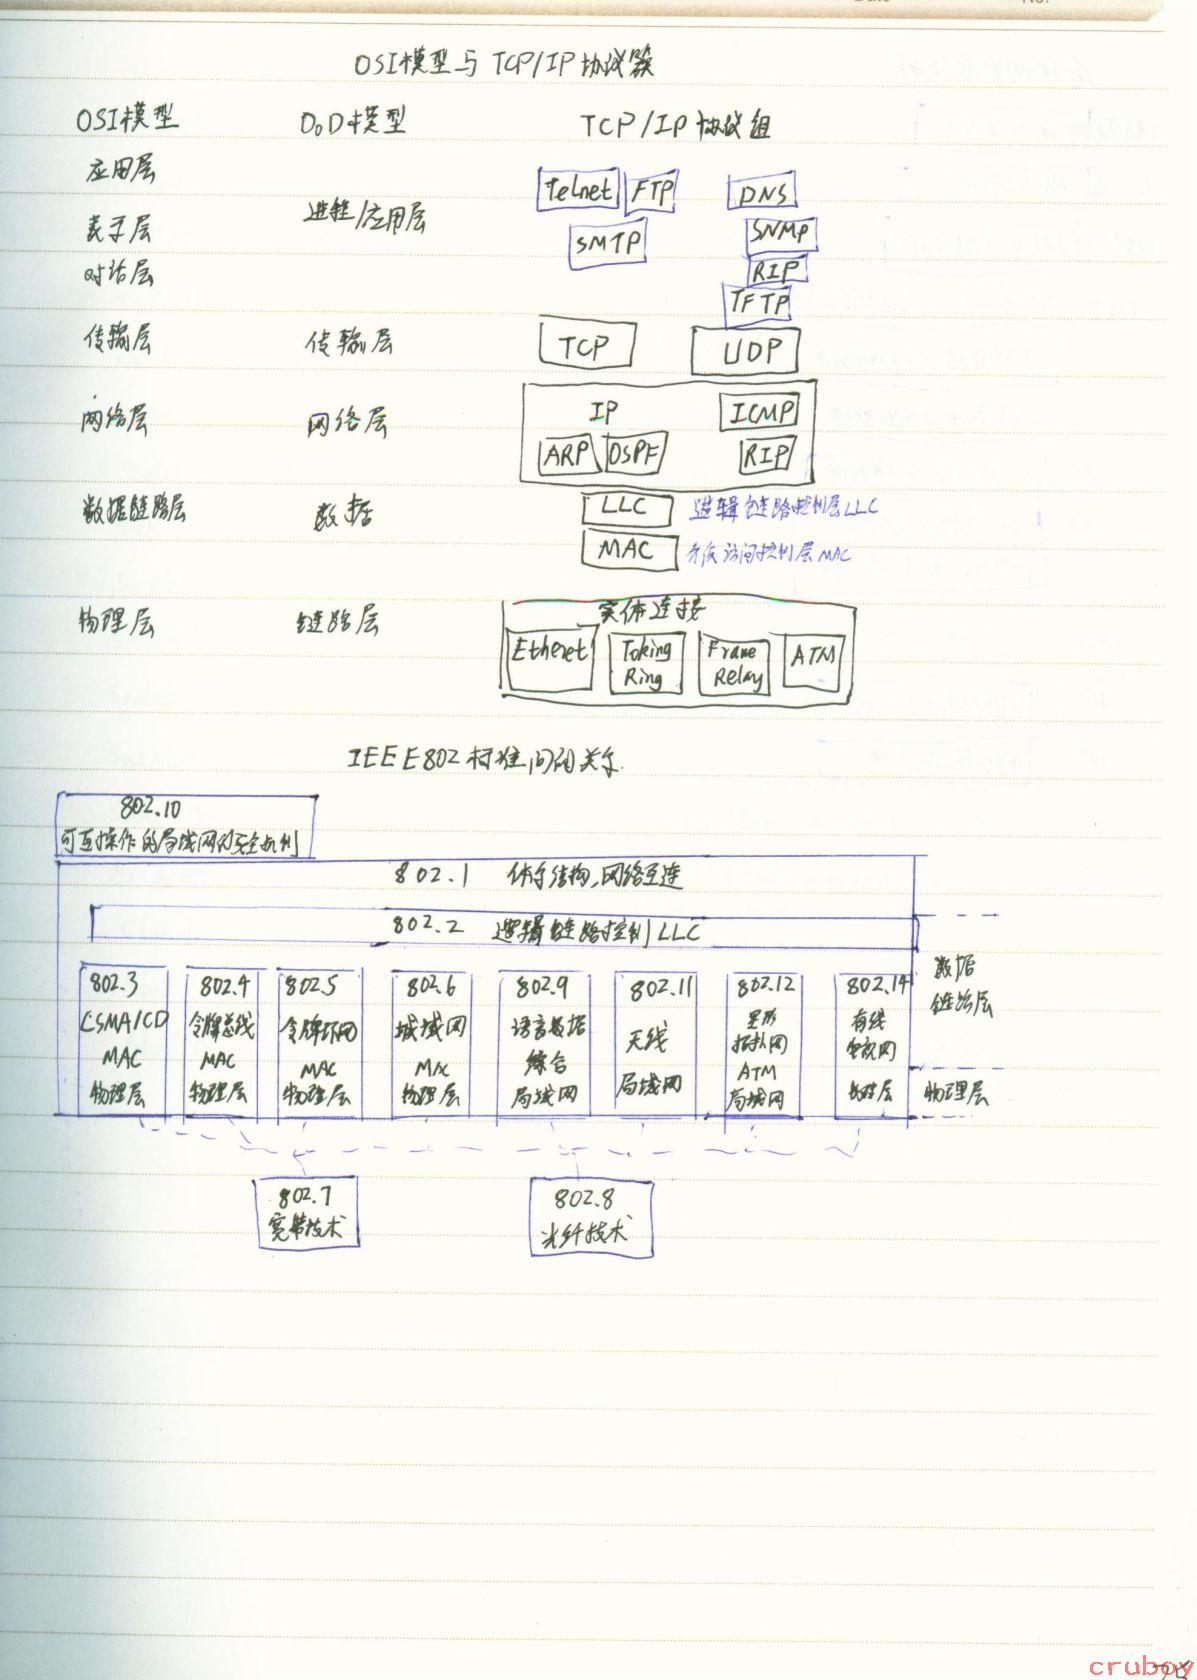 OSI模型与TCP/IP协议簇
OSI模型 DoD模型 TCP/IP协议组
应用层
Telnet FTP DNS
表示层 进程/应用层
SMTP SNMP
对话层
RIP
TFTP
传输层 传输层 TCP UDP
网络层 网络层 IP ICMP
ARP OSPF RIP
数据链路层 数据 LLC 逻辑链路控制层LLC
MAC 介质访问控制层MAC
物理层 链路层 实体连接
Etheret Toking Ring Frame Relay ATM
IEEE802标准间的关系
802.10
可互操作的局域网的安全机制
802.1 体系结构,网络互连
802.2 逻辑链路控制LLC
数据
链路层
802.3
CSMA/CD
MAC
物理层
802.4
令牌总线
MAC
物理层
802.5
令牌环网
MAC
物理层
802.6
城域网
MAC
物理层
802.9
语音数据
综合
局域网
802.11
无线
局域网
802.12
星形
拓扑网
ATM
局域网
802.14
有线
电视网
物理层
物理层
802.7
宽带技术
802.8
光纤技术
cruboy